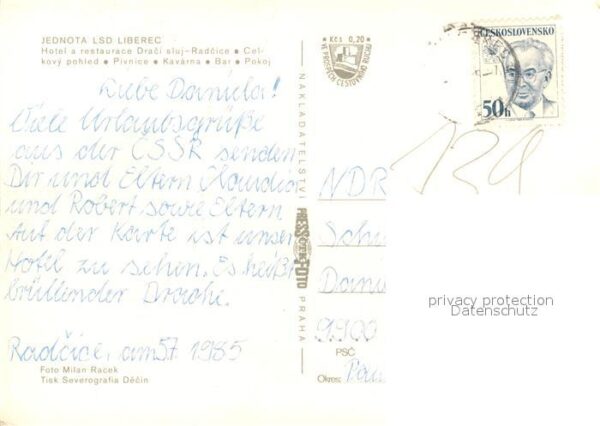 JEDNOTA LSD LIBEREC
Hotel a restaurace Dračí sluj-Radčice • Cel-
kový pohled • Pivnice • Kavárna • Bar • Pokoj
Liebe Daniela!
Viele Urlaubsgrüße
aus der ČSSR senden
Dir und Eltern Claudia
und Robert sowie Eltern
Auf der Karte ist unser
Hotel zu sehen. Es heißt
brüllender Drache.
Radčice, am 5.7. 1985
Foto Milan Racek
Tisk Severografia Děčín
NAKLADATELSTVÍ
PRESSFOTO
PRAHA
Kčs 0,20
VE PROSPĚCH CESTOVNÍHO RUCHU
ČESKOSLOVENSKO
50h
NDR
Schu
Dani
9900
PSČ
Okres: Plau
privacy protection
Datenschutz